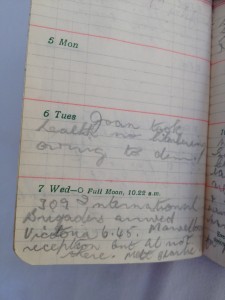 5 Mon
6 Tues Joan took
health no
owing to
7 Wed—O Full Moon, 10.22 a.m.
309 International
Brigaders arrived
Victoria 6.45. Marvellous
reception but at not
there. Met